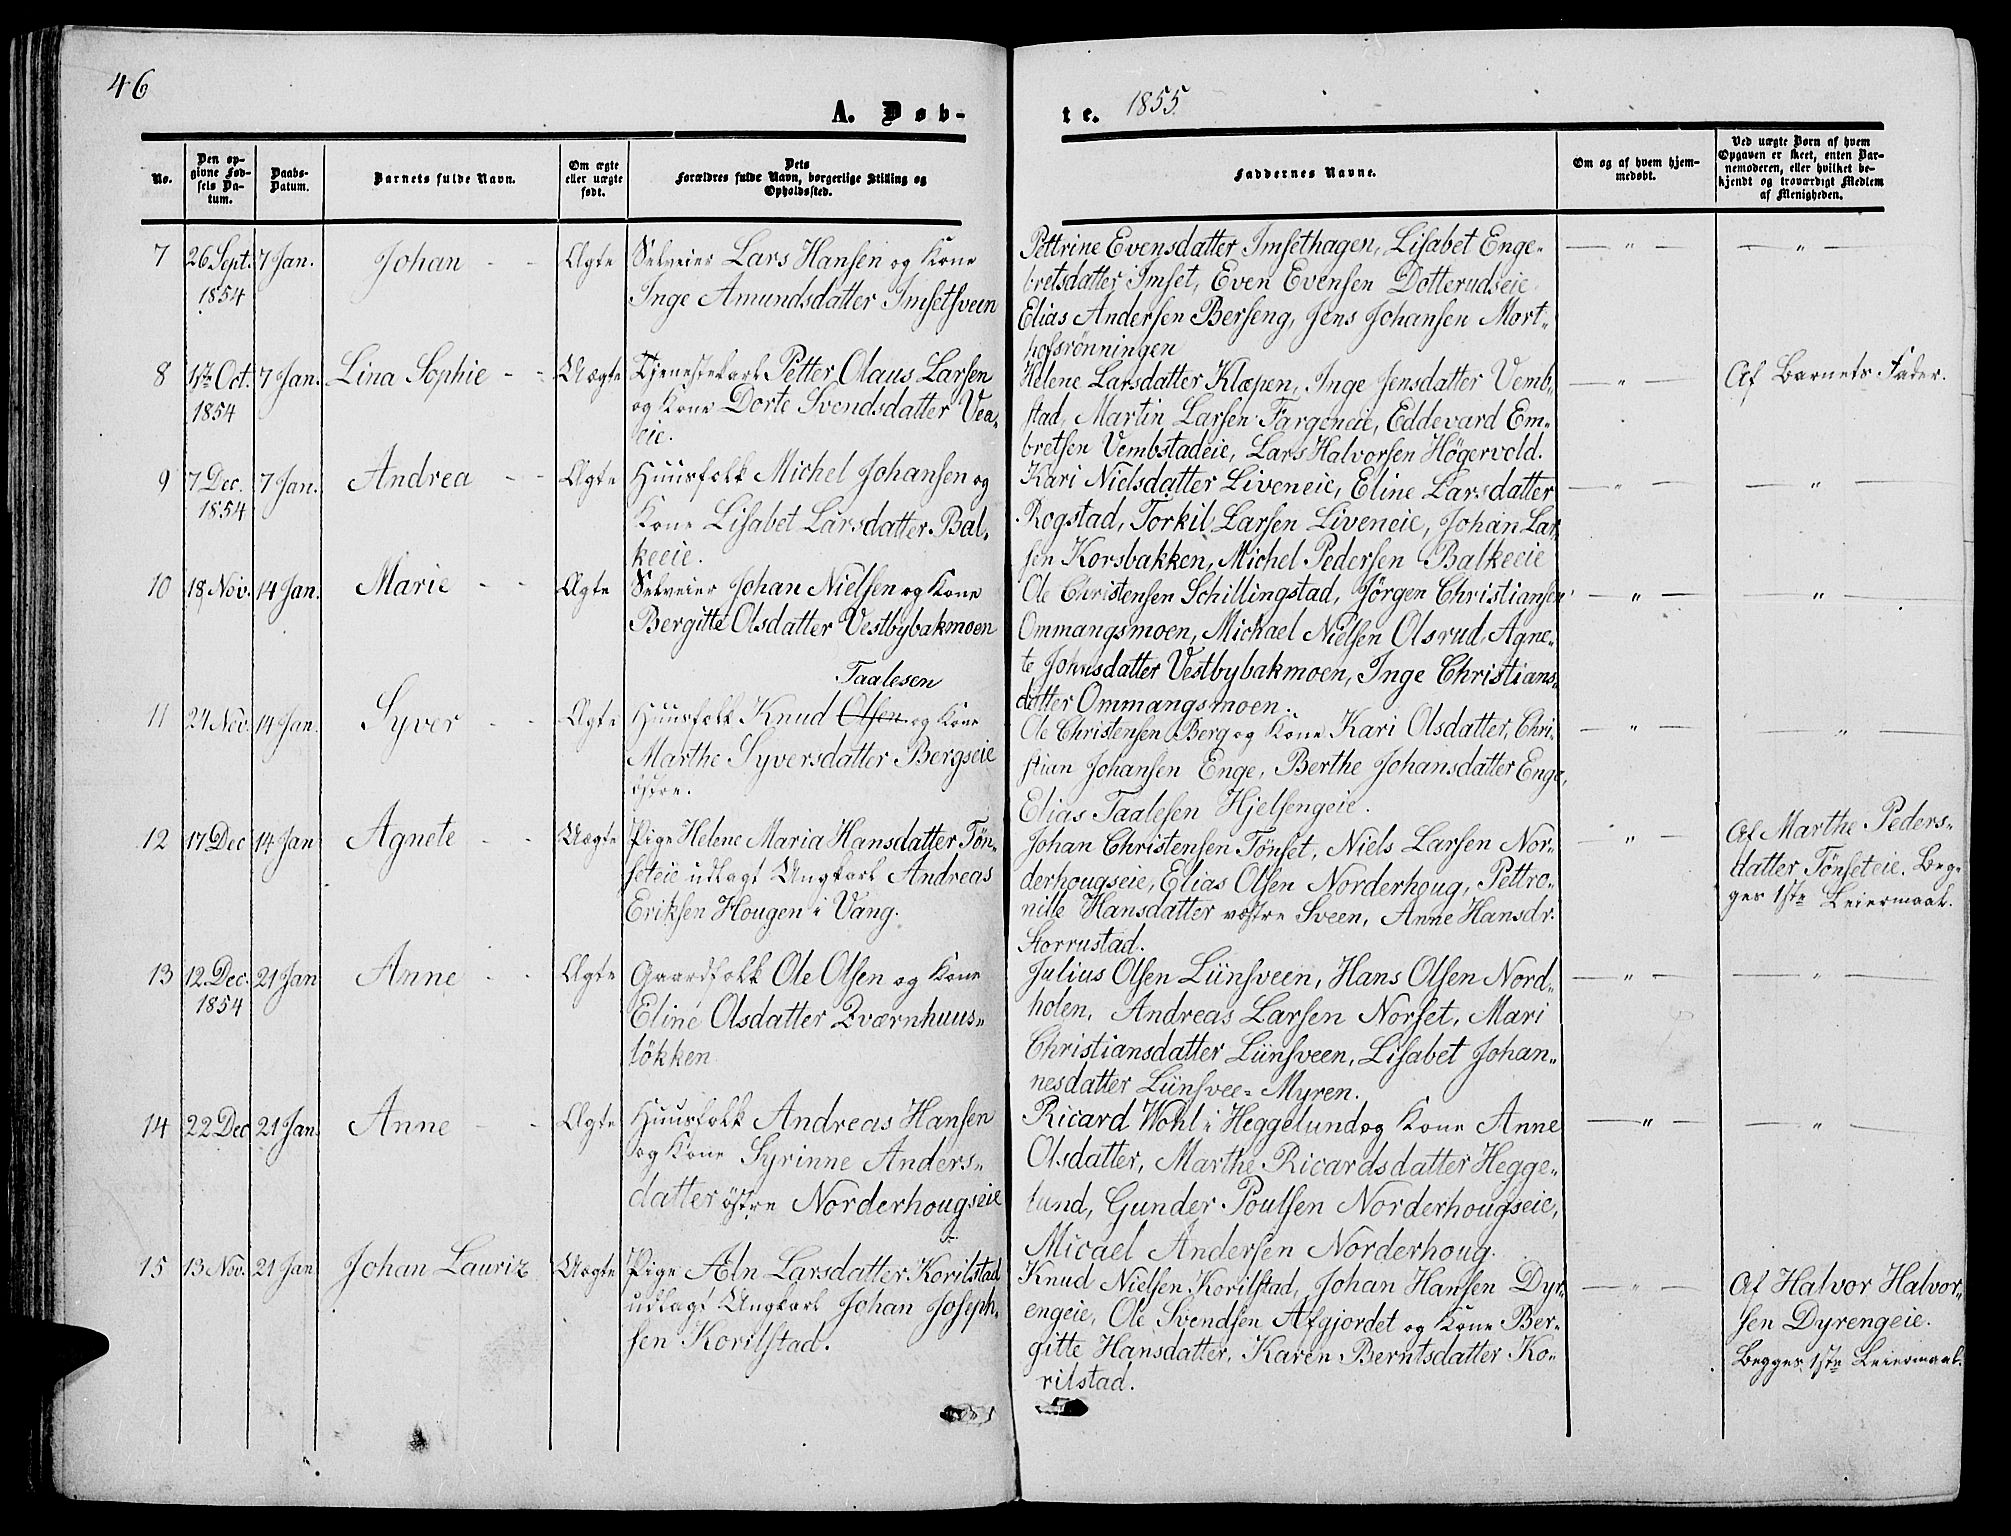 46
A. Døb-
te. 1855.
No.
Den op-
givne Fød-
sels Da-
tum.
Daabs-
Datum.
Barnets fulde Navn.
Om ægte
eller uægte
født.
Dets
Forældres fulde Navn, borgerlige Stilling og
Opholdssted.
Faddernes Navne.
Om og af hvem hjem-
medøbt.
Ved uægte Børn af hvem
Opgaven er skeet, enten Bar-
nemoderen, eller hvilket be-
kjendt og troværdigt Medlem
af Menigheden.
7 26 Sept. 7 Jan. Johan - - Ægte Selveier Lars Hansen og Kone
1854 Inge Amundsdatter Imsetsveen
Pettrine Evensdatter Imsethagen, Lisabet Enge-
bretsdatter Imset, Even Evensen Dotterudseie
Elias Andersen Berseng, Jens Johansen Mort-
hofsrønningen
— " — — " —
8 1ste Oct. 7 Jan. Lina Sophie - - Uægte Tjenestekarl Petter Olaus Larsen
1854 og Kone Dorte Svendsdatter Vea-
eie.
Helene Larsdatter Klæpen, Inge Jensdatter Vemb-
stad, Martin Larsen Fargeneie, Eddevard Em-
bretsen Vembstadeie, Lars Halvorsen Högervold.
— " — Af Barnets Fader.
9 7 Dec. 7 Jan. Andrea - - Ægte Huusfolk Michel Johansen og
1854 Kone Lisabet Larsdatter Bal-
keeie.
Kari Nielsdatter Liveneie, Eline Larsdatter
Rogstad, Torkil Larsen Liveneie, Johan Lar-
sen Korsbakken, Michel Pedersen Balkeeie
— " — — " —
10 18 Nov. 14 Jan. Marie - - Ægte Selveier Johan Nielsen og Kone
Bergitte Olsdatter Vestbybakmoen
Ole Christensen Schillingstad, Jörgen Christiansen
Ommangsmoen, Michael Nielsen Olsrud, Agne-
te Johnsdatter Vestbybakmoen, Inge Christians-
datter Ommangsmoen.
— " — — " —
Taalesen
11 24 Nov. 14 Jan. Syver - - Ægte Huusfolk Knud Olsen og Kone
Marthe Syversdatter Bergseie
östre.
Ole Christensen Berg og Kone Kari Olsdatter, Chri-
stian Johansen Enge, Berthe Johansdatter Enge,
Elias Taalesen Hjelsengeie.
— " — — " —
12 17 Dec 14 Jan Agnete - - Uægte Pige Helene Maria Hansdatter Tön-
seteie udlagt Ungkarl Andreas
Eriksen Hougen i Vang.
Johan Christensen Tönset, Niels Larsen Nor-
derhougseie, Elias Olsen Norderhoug, Pettro-
nille Hansdatter västre Sveen, Anne Hansdr.
Storrustad.
— " — Af Marthe Peders-
datter Tönseteie. Beg-
ges 1ste Leiermaal.
13 12 Dec. 21 Jan Anne - - Ægte Gaardfolk Ole Olsen og Kone
1854 Eline Olsdatter Qværnhuus-
lökken
Julius Olsen Lünsveen, Hans Olsen Nord-
holen, Andreas Larsen Norset, Mari
Christiansdatter Lünsveen, Lisabet Johan-
nesdatter Lünsvee-Myren.
— " — — " —
14 22 Dec 21 Jan. Anne - - Ægte Huusfolk Andreas Hansen
og Kone Syrinne Anders-
datter östre Norderhougseie
Ricard Wohl i Heggelund og Kone Anne
Olsdatter, Marthe Ricardsdatter Hegge-
lund, Gunder Poulsen Norderhougseie,
Micael Andersen Norderhoug.
— " — — " —
15 13 Nov. 21 Jan Johan Lauriz Uægte Pige Aln Larsdatter Korilstad
udlagt Ungkarl Johan Joseph-
sen Korilstad.
Knud Nielsen Korilstad, Johan Hansen Dyr-
engeie, Ole Svendsen Afgjordet og Kone Ber-
gitte Hansdatter, Karen Berntsdatter Ko-
rilstad.
— " — Af Halvor Halvor-
sen Dyrengeie.
Begges 1ste Leiermaal.